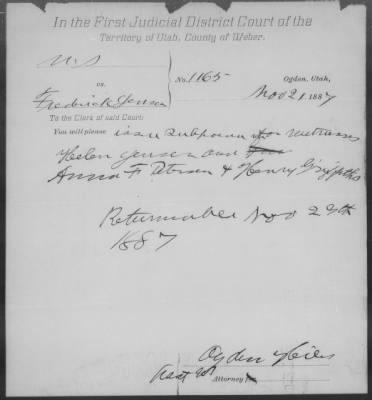 In the First Judicial District Court of the
Territory of Utah, County of Weber.
U.S
vs.
Fredrick Jensen
No. 1165
Ogden, Utah,
Nov 21 1887
To the Clerk of said Court:
You will please issue Subpoena for witnesses
Helen Jensen and
Anna F. Peterson & Henry Griffiths
Returnable Nov 29th
1887
Ogden Hiles
Asst US
Attorney